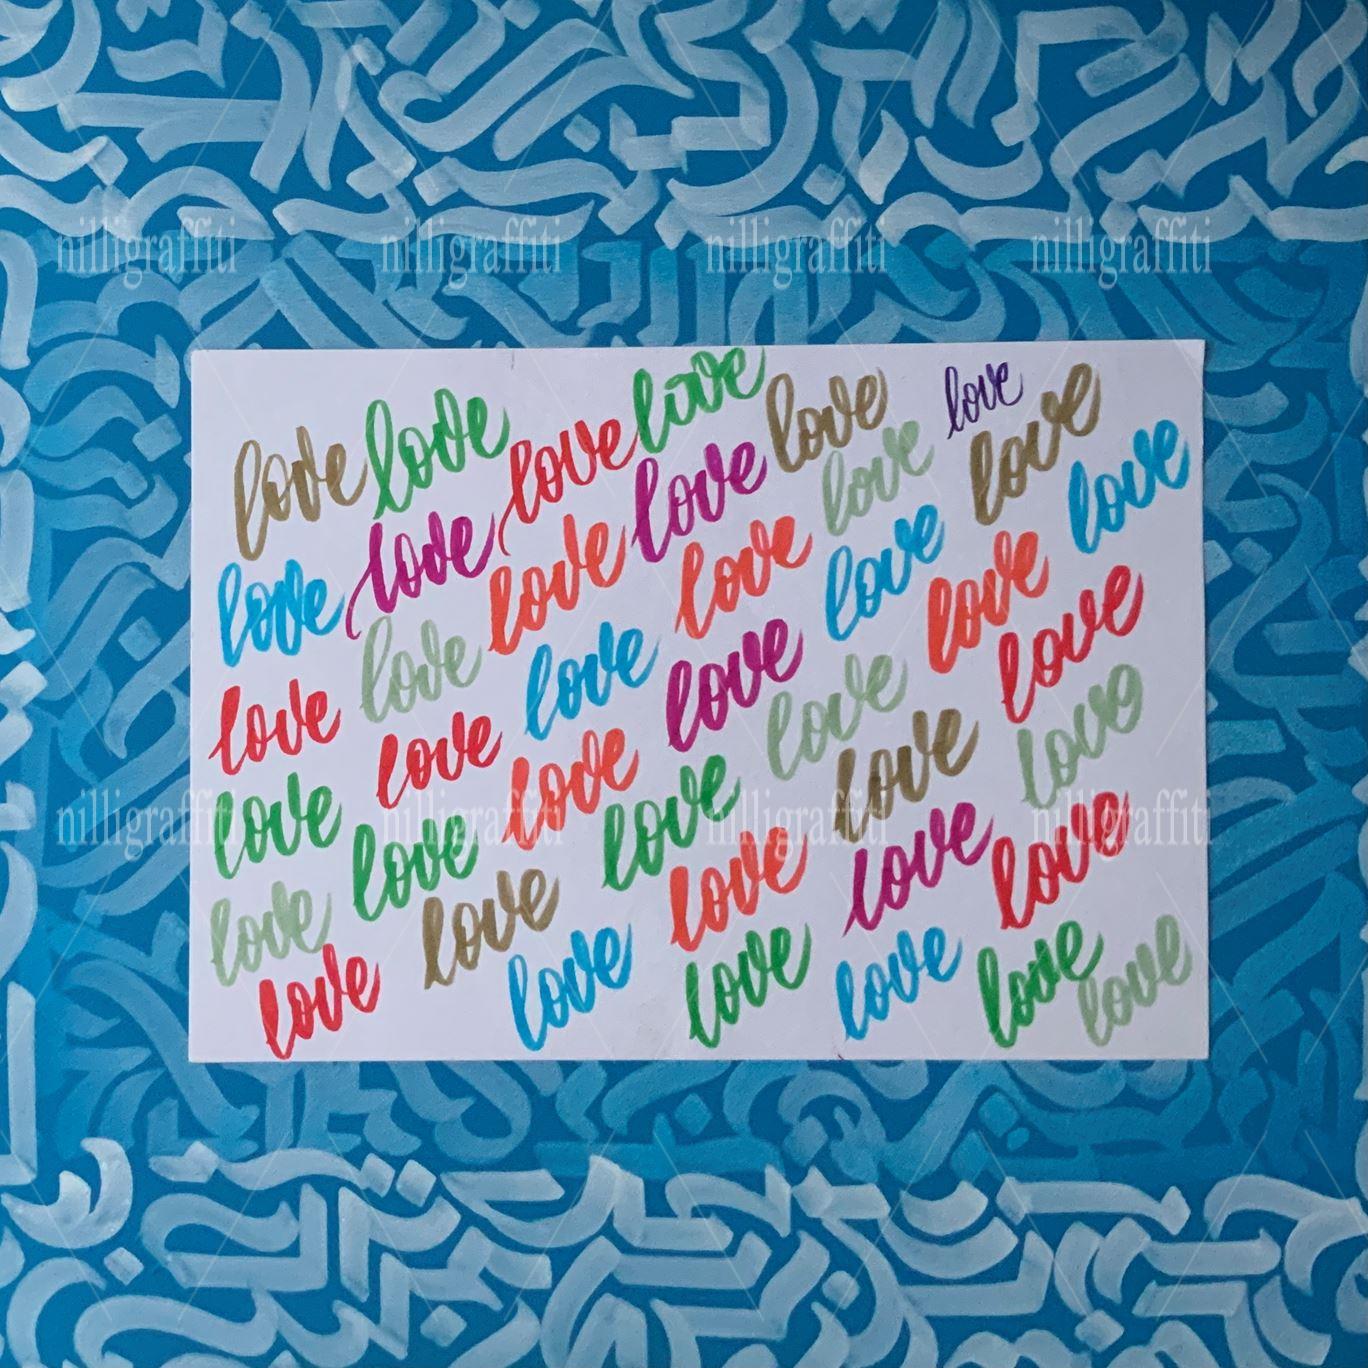 nilligraffiti nilligraffiti nilligraffiti nilligraffiti
love love love love love love love love
love love love love love love love love love
love love love love love love love
love love love love love love love
nilligraffiti nilligraffiti nilligraffiti nilligraffiti
love love love love love love love love
love